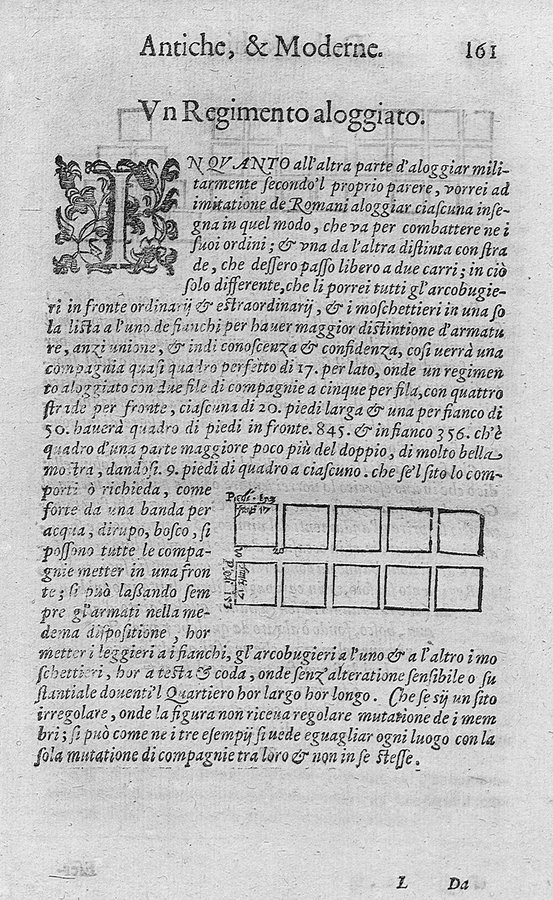 Antiche, & Moderne. 161
Vn Regimento aloggiato.
IN QVANTO all'altra parte d'aloggiar mili-
tarmente ſecondo'l proprio parere, vorrei ad
imitatione de Romani aloggiar ciaſcuna inſe-
gna in quel modo, che va per combattere ne i
ſuoi ordini; & vna da l'altra diſtinta con ſtra
de, che deſſero paſſo libero a due carri; in ciò
ſolo differente, che li porrei tutti gl'arcobugie-
ri in fronte ordinarij & eſtraordinarij, & i moſchettieri in una ſo
la liſta a l'uno de fianchi per hauer maggior diſtintione d'armatu
re, anzi unione, & indi conoſcenza & confidenza, coſi verrà una
compagnia quaſi quadro perfetto di 17. per lato, onde un regimen
to aloggiato con due file di compagnie a cinque per fila, con quattro
ſtrade per fronte, ciaſcuna di 20. piedi larga & una per fianco di
50. hauerà quadro di piedi in fronte. 845. & in fianco 356. ch'è
quadro d'una parte maggiore poco più del doppio, di molto bella
moſtra, dandoſi. 9. piedi di quadro a ciaſcuno. che ſe'l ſito lo com-
porti ò richieda, come
forte da una banda per
acqua, dirupo, boſco, ſi
poſſono tutte le compa-
gnie metter in una fron
te; ſi può laſſando ſem
pre gl'armati nella me-
dema diſpoſitione, hor
Piedi. 153
20
Piedi 153
metter i leggieri a i fianchi, gl'arcobugieri a l'uno & a l'altro i mo
ſchettieri, hor a teſta & coda, onde senz'alteratione ſenſibile o ſu
ſtantiale douenti'l Quartiero hor largo hor longo. Che ſe ſij un ſito
irregolare, onde la figura non riceua regolare mutatione de i mem
bri; ſi può come ne i tre eſempij ſi uede eguagliar ogni luogo con la
ſola mutatione di compagnie tra loro & non in ſe ſteſſe.
L Da